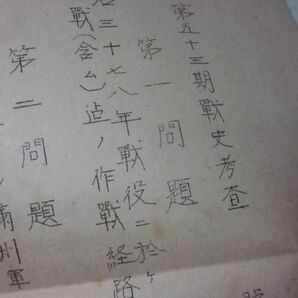 第五十三期戰史考査
第一問題
三十七八年戰役ニ於ケ
戰(含ム)迠ノ作戰経路
第二問題
満州軍